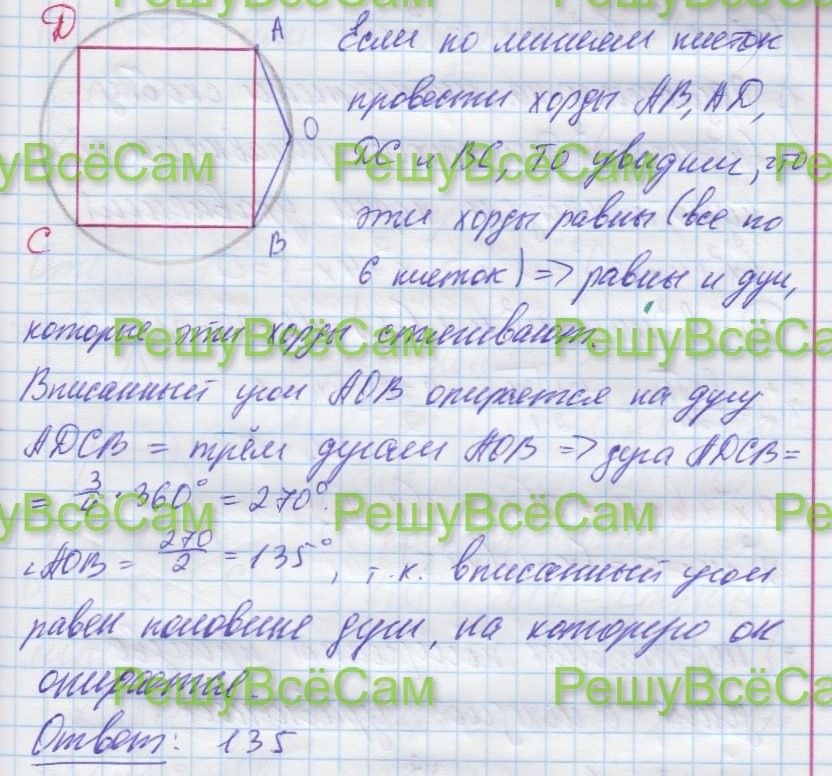 РешуВсёСам РешуВсёСам
D A
Если по линиям клеток
провести хорды AB, AD,
O
РешуВсёСам РешуВсёСам РешуВсёСам
DC и BC, то увидим, что
эти хорды равны (все по
C B
6 клеток) => равны и дуги,
РешуВсёСам РешуВсёСам
которые эти хорды стягивают.
Вписанный угол AOB опирается на дугу
ADCB = трём дугам AOB => дуга ADCB =
= 3/4 · 360° = 270°.
РешуВсёСам РешуВсёСам РешуВсёСам
∠AOB = 270/2 = 135°, т.к. вписанный угол
равен половине дуги, на которую он
опирается.
РешуВсёСам РешуВсёСам
Ответ: 135